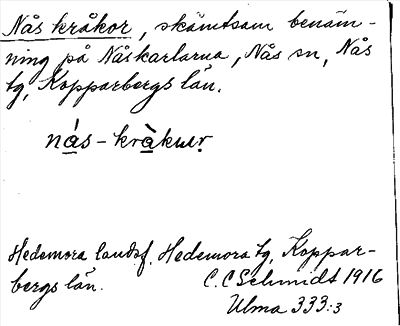 Nås kråkor, skämtsam benäm-
ning på Nåskarlarna, Nås sn, Nås
tg, Kopparbergs län.
nås-kråkur
Hedemora landsf. Hedemora tg, Koppar-
bergs län.
C. C Schmidt 1916
Ulma 333:3